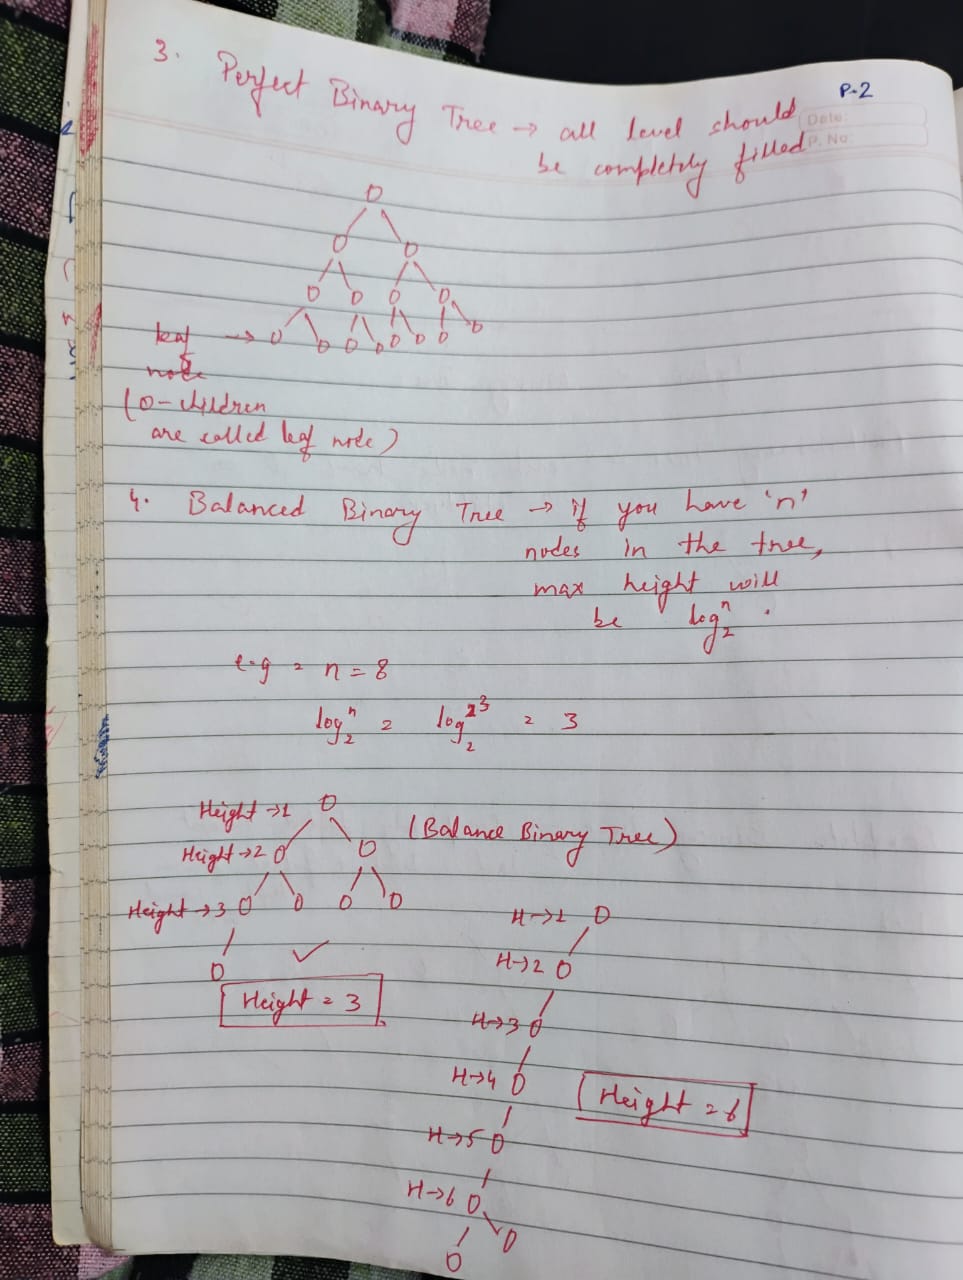 P-2
Date:
P. No:
3. Perfect Binary Tree → all level should
be completely filled
leaf → 
node
(0-children
are called leaf node)
4. Balanced Binary Tree → if you have 'n'
nodes in the tree,
max height will
be log₂ⁿ.
e.g = n = 8
log₂ⁿ = log₂2³ = 3
Height →1
(Balance Binary Tree)
Height →2
Height →3
✓
Height = 3
H→1
H→2
H→3
H→4
Height = 6
H→5
H→6